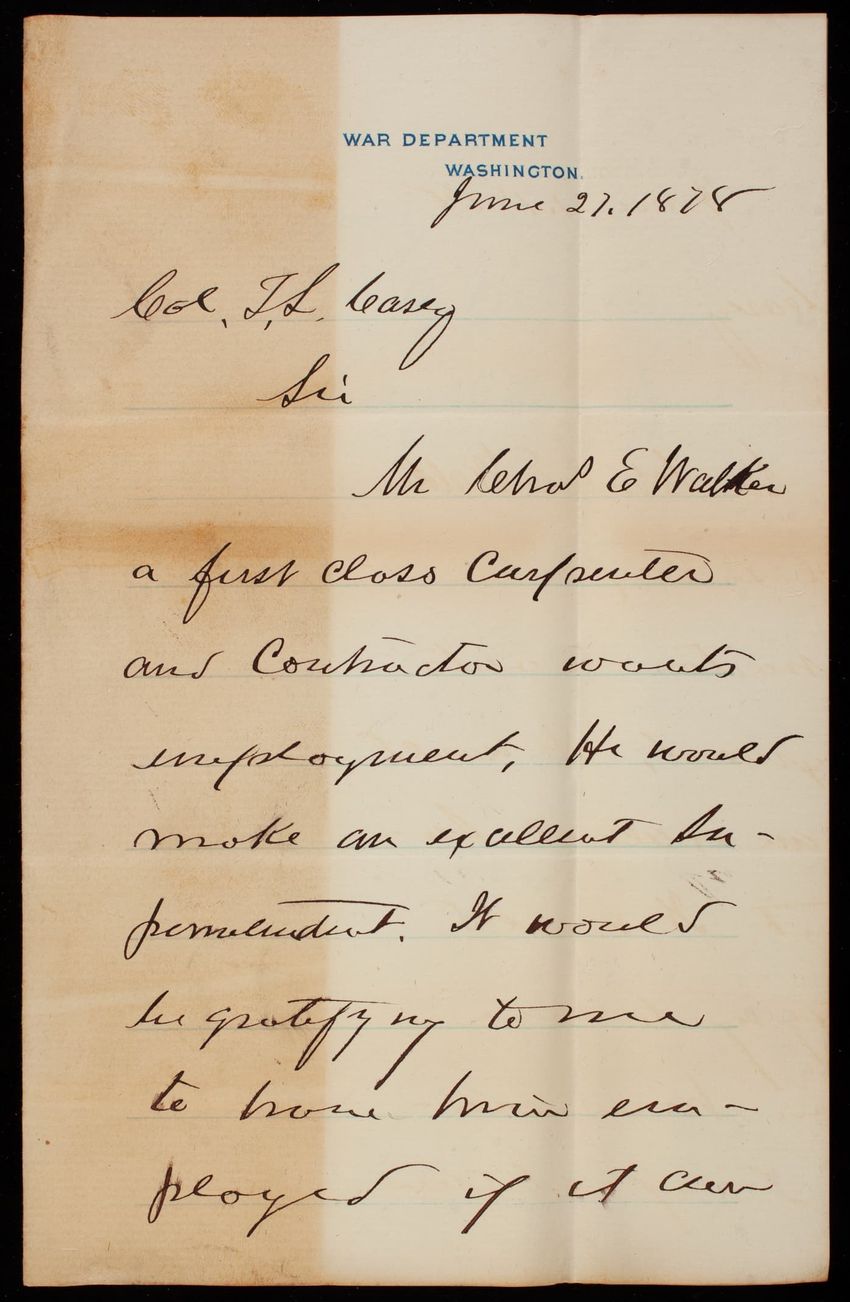 WAR DEPARTMENT
WASHINGTON.
June 27, 1878
Col, T, L, Casey
Sir
Mr Chas E Walker
a first class Carpenter
and Contractor wants
employment, He would
make an excellent Su-
perintendent. It would
be gratifying to me
to have him em-
ployed if it can